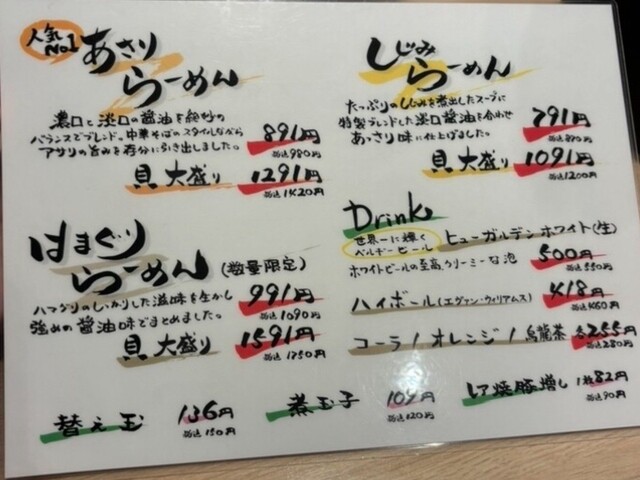 人気No1
あさりらーめん
濃口と淡口の醤油を絶妙の
バランスでブレンド。中華そばのスタイルながら
アサリの旨みを存分に引き出しました。
891円
税込980円
貝大盛り 1291円
税込1420円
しじみらーめん
たっぷりのしじみを煮出したスープに
特製ブレンドした淡口醤油を合わせ
あっさり味に仕上げました。
791円
税込870円
貝大盛り 1091円
税込1200円
はまぐりらーめん(数量限定)
ハマグリのしっかりした滋味を生かし
強めの醤油味でまとめました。
991円
税込1090円
貝大盛り 1591円
税込1750円
Drink
世界一に輝く
ベルギービール
ヒューガルデンホワイト(生)
ホワイトビールの至高、クリーミーな泡
500円
税込550円
ハイボール(エヴァン・ウィリアムス) 418円
税込460円
コーラ/オレンジ/烏龍茶 各255円
税込280円
替え玉 136円
税込150円
煮玉子 109円
税込120円
レア焼豚増し 1枚82円
税込90円